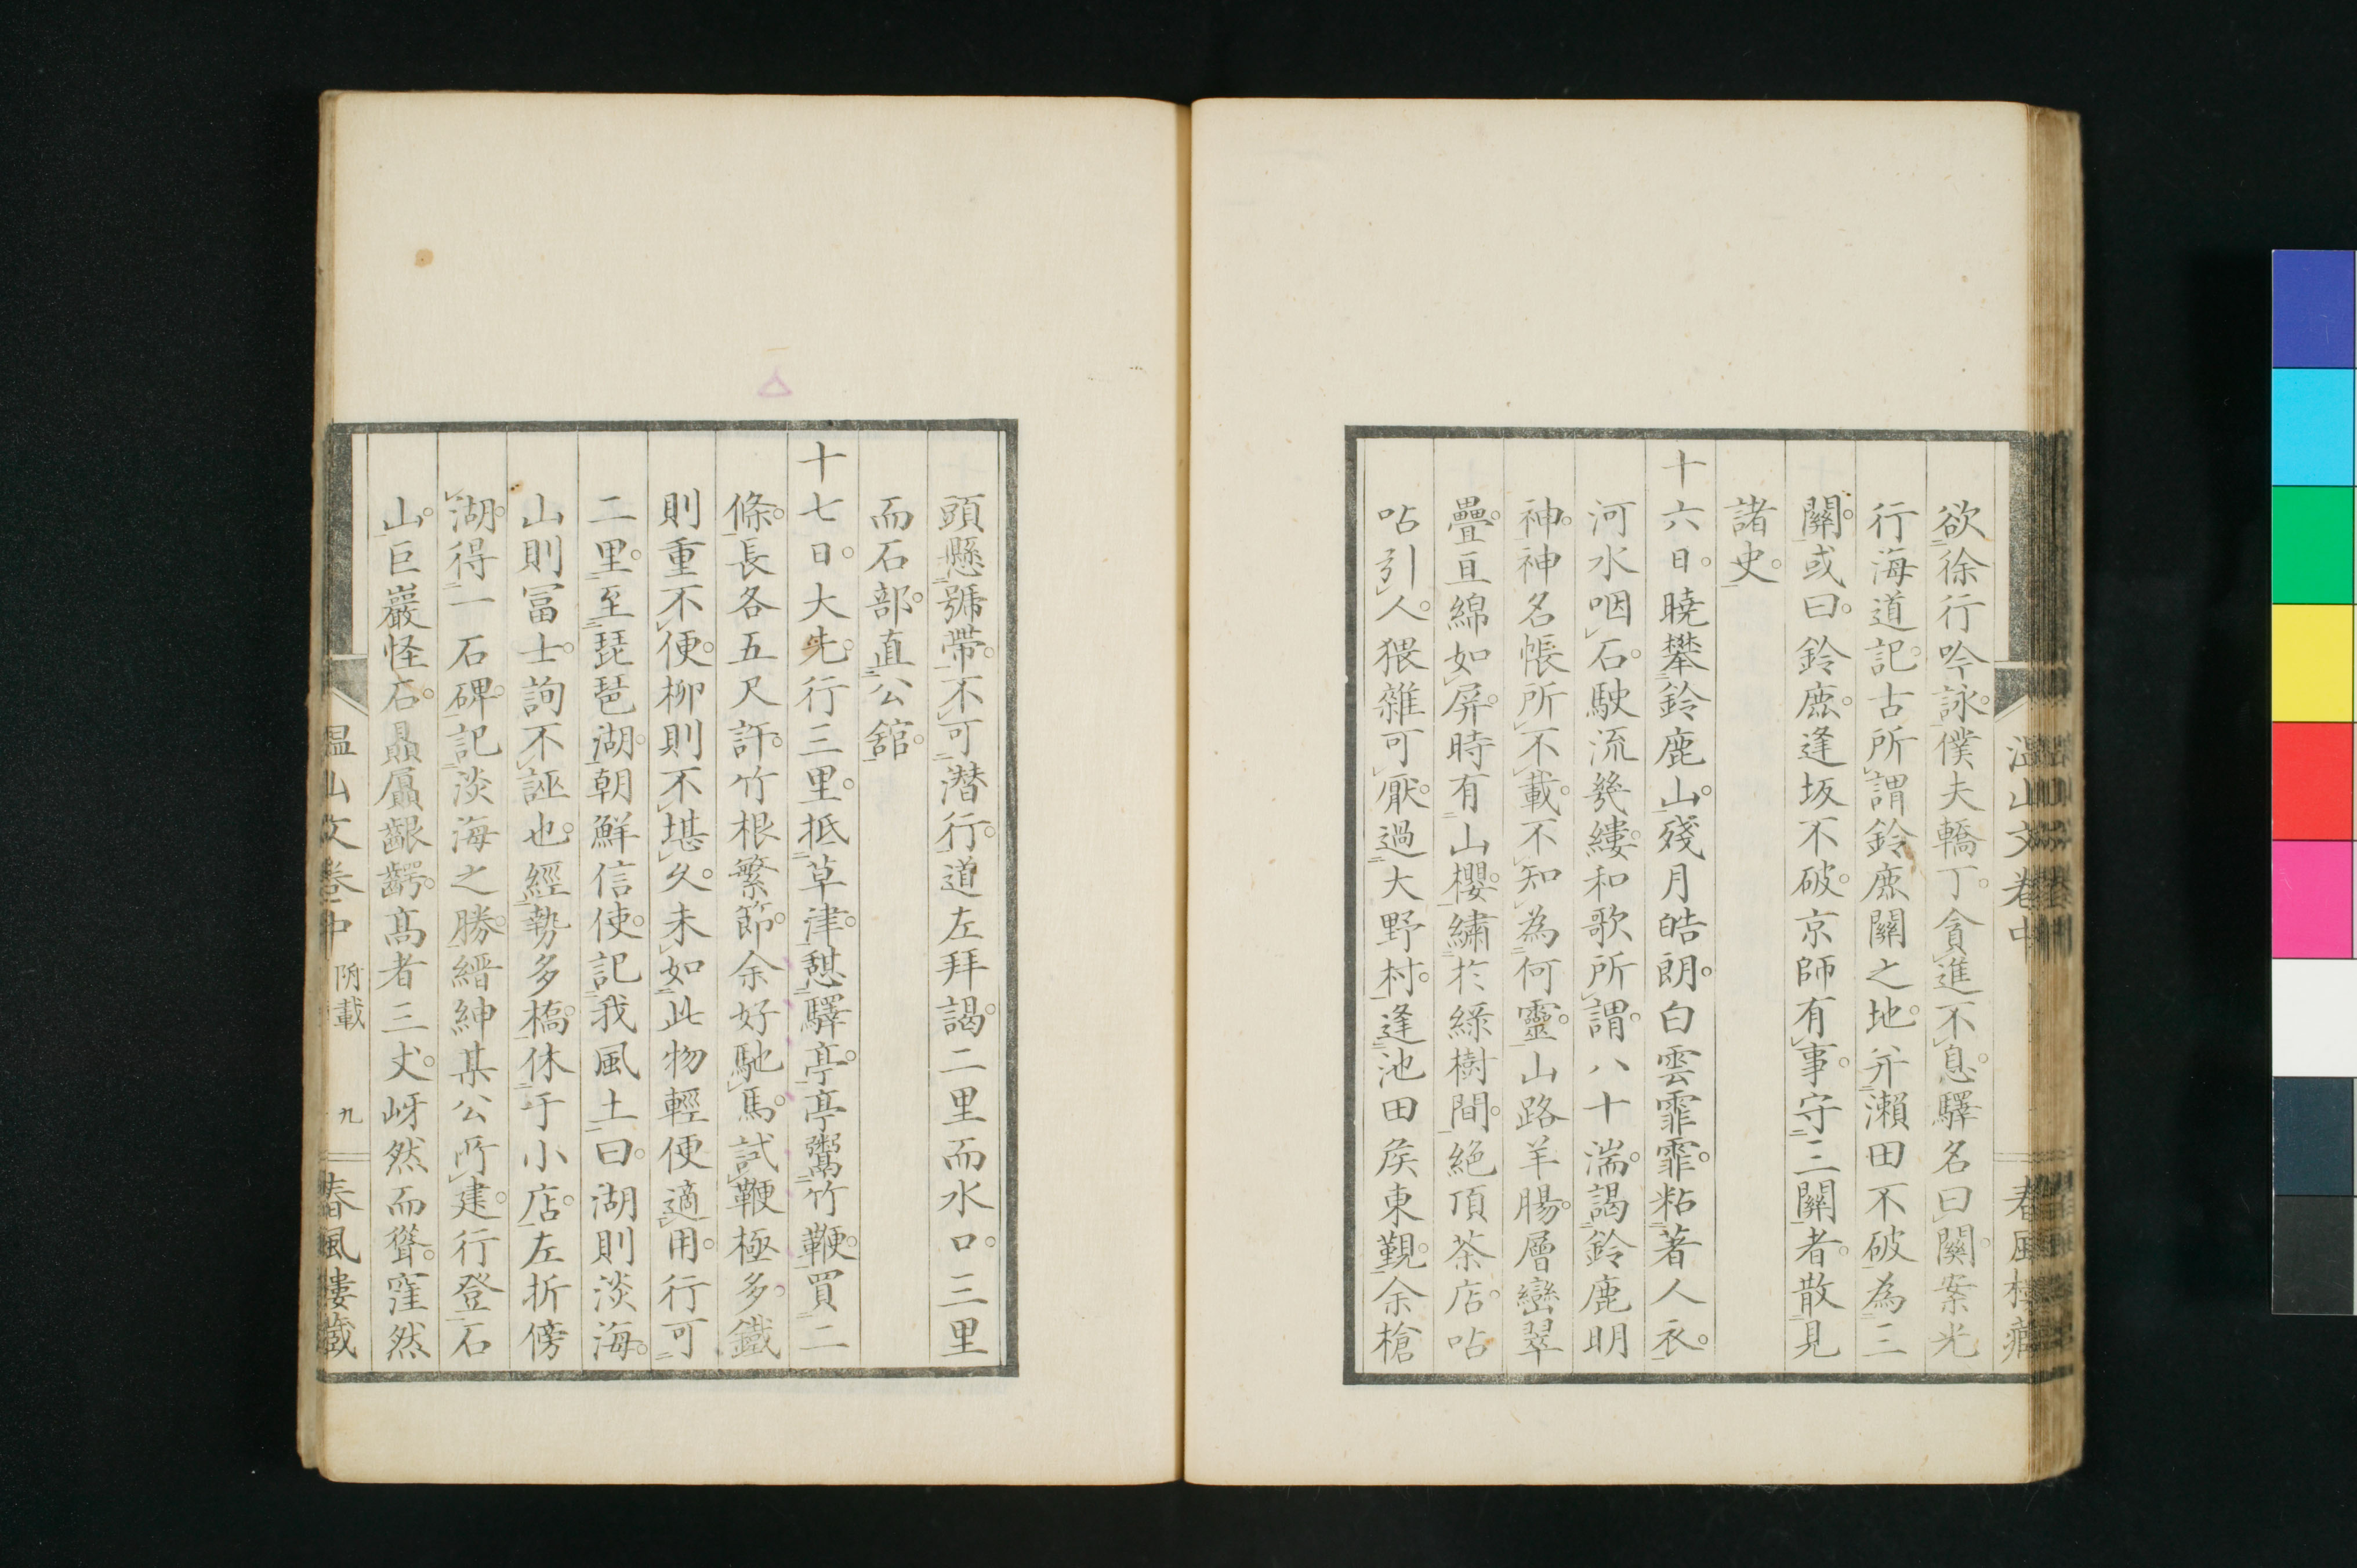 欲徐行吟詠。僕夫轎丁。貪進不息。驛名曰關。案光
行海道記。古所謂鈴鹿關之地。幷瀨田不破為三
關。或曰。鈴鹿。逢坂不破。京師有事。守三關者。散見
諸史。
十六日。曉攀鈴鹿山。殘月皓朗。白雲霏霏。粘著人衣。
河水咽石。駛流幾縷。和歌所謂。八十湍。謁鈴鹿明
神。神名帳所不載。不知為何靈。山路羊腸。層巒翠
疊。亘綿如屏。時有山櫻。繡於綠樹間。絕頂茶店。呫
呫引人。猥雜可厭。過大野村。逢池田矦東覲。余槍
頭懸號帶。不可潜行。道左拜謁。二里而水口。三里
而石部。直公舘。
十七日。大先。行三里。抵草津。憩驛亭。亭鬻竹鞭。買二
條。長各五尺許。竹根繁節。余好馳馬。試鞭極多。鐵
則重不便。柳則不堪久。未如此物輕便適用。行可
二里。至琵琶湖。朝鮮信使。記我風土曰。湖則淡海。
山則冨士。詢不誣也。經勢多橋。休于小店。左折傍
湖。得一石碑。記淡海之勝。縉紳某公所建。行登石
山。巨巖怪石。贔屭齦齶。髙者三丈。岈然而聳。窪然
温山文卷中 附載 九 春風樓藏